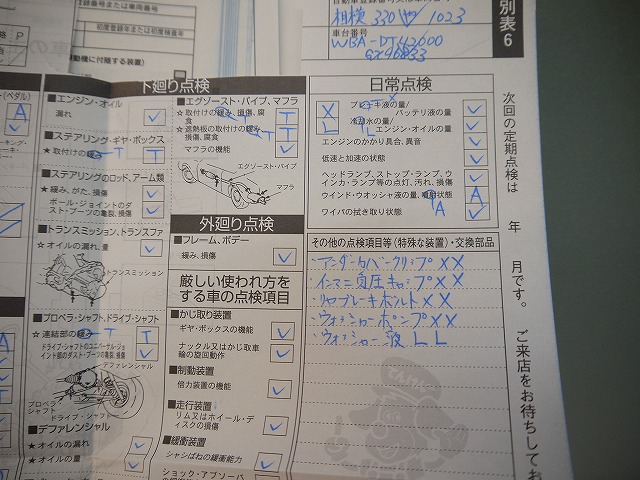 録番号または車両番号
初度登録年または初度検査年
相模330
1023
車台番号
WBA-DT42000
別表6
下廻り点検
日常点検
(ペダル)
■エンジン・オイル
漏れ
■ステアリング・ギヤ・ボックス
★取付けの緩み T T
■ステアリングのロッド、アーム類
★緩み、がた、損傷
ボール・ジョイントのダスト・ブーツの亀裂、損傷
■トランスミッション、トランスファ
☆オイルの漏れ、量
トランスミッション
■プロペラ・シャフト、ドライブ・シャフト
☆連結部の緩み T T
ドライブ・シャフトのユニバーサル・ジョイント部のダスト・ブーツの亀裂、損傷
デファレンシャル
プロペラシャフト
ドライブ・シャフト
■デファレンシャル
★オイルの漏れ
★オイルの量
■エグゾースト・パイプ、マフラ
☆取付けの緩み、損傷、腐食 T
☆遮熱板の取付けの緩み、損傷、腐食 T
マフラの機能
エグゾースト・パイプ
マフラ
外廻り点検
■フレーム、ボデー
緩み、損傷
厳しい使われ方をする車の点検項目
■かじ取り装置
ギヤ・ボックスの機能
ナックル又はかじ取車輪の旋回動作
■制動装置
倍力装置の機能
■走行装置
リム又はホイール・ディスクの損傷
■緩衝装置
シャシばねの緩衝能力
ショック・アブソーバ
X ブレーキ液の量/
バッテリ液の量
L 冷却水の量/
エンジン・オイルの量
エンジンのかかり具合、異音
低速と加速の状態
ヘッドランプ、ストップ・ランプ、ウインカ・ランプ等の点灯、汚れ、損傷
ウインド・ウオッシャ液の量、噴射状態 A
ワイパの拭き取り状態
その他の点検項目等(特殊な装置)・交換部品
・アンダーカバークリップ XX
・インマニ負圧キャップ XX
・リヤブレーキボルト XX
・ウォッシャーポンプ XX
・ウォッシャー液 LL
次回の定期点検は 年 月です。ご来店をお待ちしてお